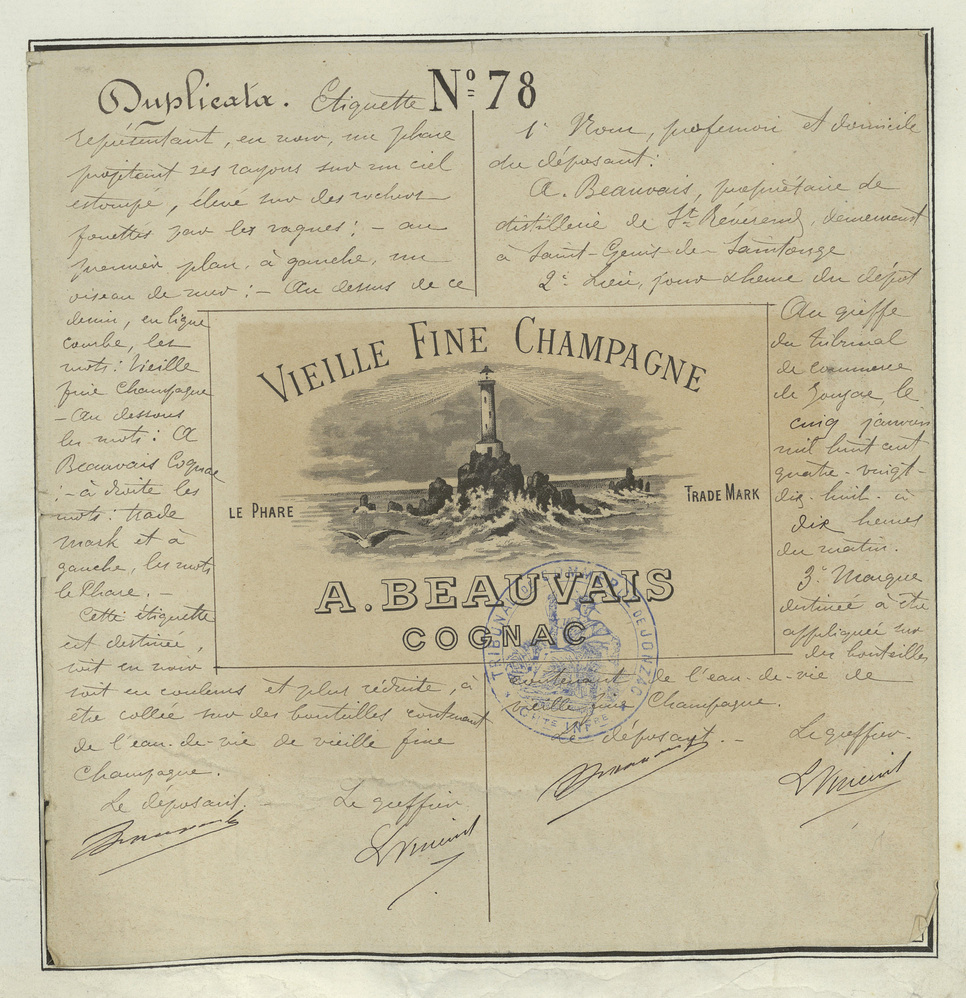 Duplicata. Etiquette
représentant, en noir, un phare
projetant ses rayons sur un ciel
estompé, élevé sur des rochers
fouettés par les vagues; - au
premier plan, à gauche, un
oiseau de mer; - Au dessus de ce
dessin, en ligne
courbe, les
mots: Vieille
fine Champagne
- Au dessous
les mots: A
Beauvais Cognac
; - à droite les
mots: trade
mark et à
gauche, les mots
le Phare. -
Cette étiquette
est destinée,
soit en noir
soit en couleurs et plus réduite, à
être collée sur des bouteilles contenant
de l'eau-de-vie de vieille fine
Champagne.
Le déposant. - Le greffier
Nº 78
1º Nom, profession et domicile
du déposant:
A. Beauvais, propriétaire de
distillerie de St Révérend, demeurant
à Saint-Genis-de-Saintonge
2º Lieu, jour & heure du dépôt
Au greffe
du tribunal
de commerce
de Jonzac, le
cinq janvier
mil huit cent
quatre-vingt-
dix-huit à
dix heures
du matin.
3º Marque
destinée à être
appliquée sur
des bouteilles
contenant de l'eau-de-vie de
vieille fine Champagne.
Le déposant. - Le greffier.
VIEILLE FINE CHAMPAGNE
LE PHARE
TRADE MARK
A. BEAUVAIS
COGNAC
TRIBUNAL DE COMMERCE DE JONZAC
CHTE INFRE